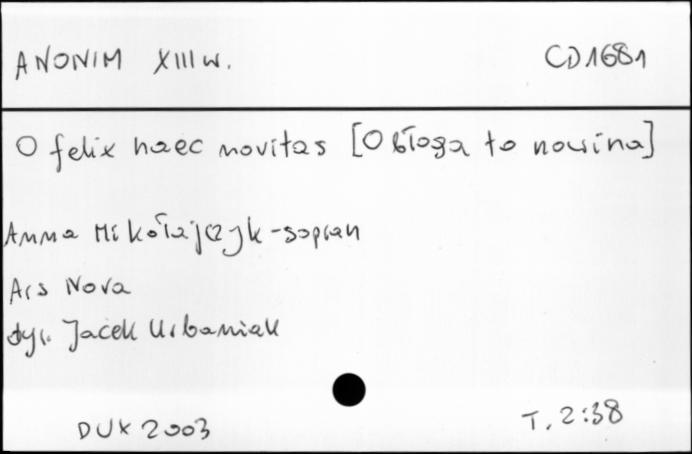 ANONIM XIII w. CD1681
O felix haec novitas [O błoga to nowina]
Anna Mikołajczyk-sopran
Ars Nova
dyr. Jacek Urbaniak
DUX 2003 T. 2:38